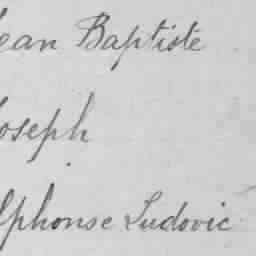 Jean Baptiste
Joseph
Alphonse Ludovic